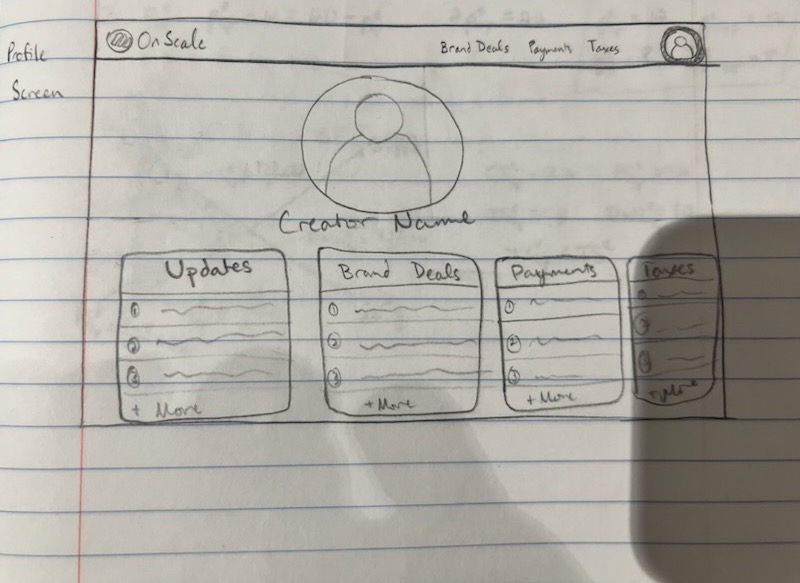 Profile
Screen
OnScale
Brand Deals Payments Taxes
Creator Name
Updates
1
2
3
+ More
Brand Deals
1
2
3
+ More
Payments
1
2
3
+ More
Taxes
+ More